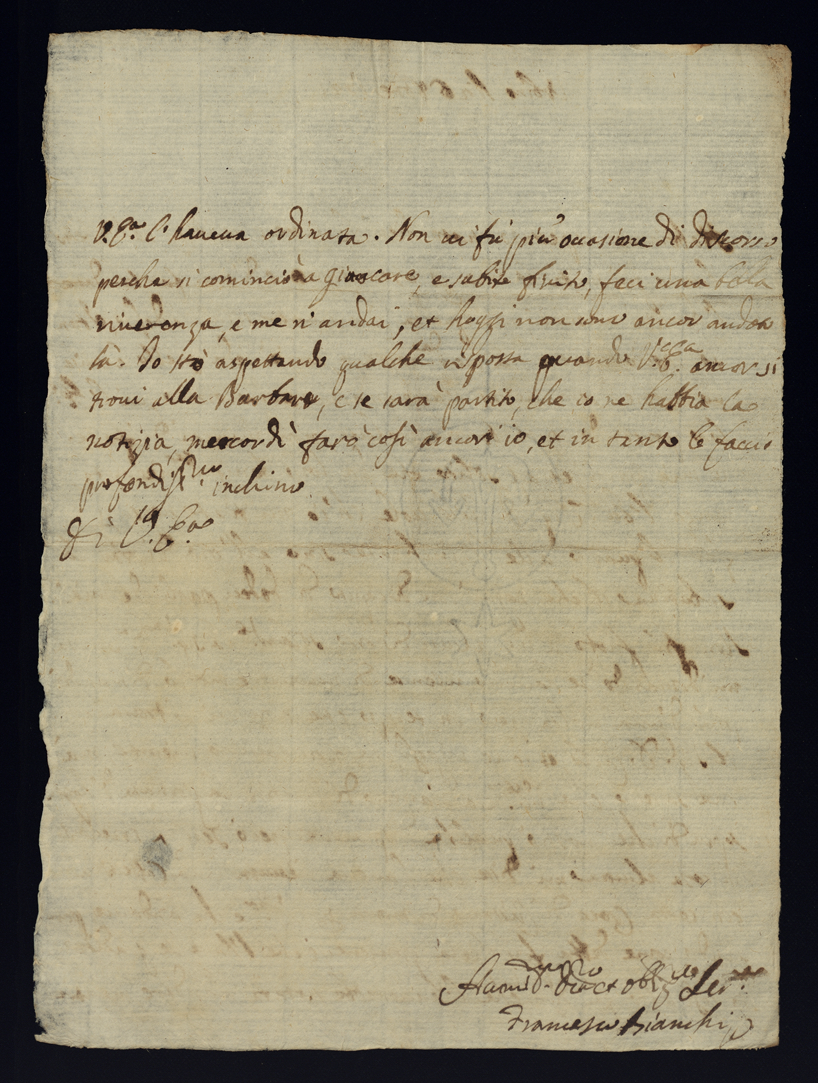 V. Ecc.a l'haueua ordinata. Non ui fù più occasione di discorso
perche si cominciò a giuocare, e subito finito, feci una bella
riuerenza, e me n'andai, et hoggi non sono ancor andato
là. Io stò aspettando qualche risposta quando V. Ecc.a ancor si
troui alla Barbara, e se sarà partito, che io ne habbia la
notizia, mercordì farò così ancor io, et in tanto le faccio
profondiss.mo inchino
Di V. Ecc.a
Humiliss.mo et oblig.mo Ser.e
Francesco Bianchi